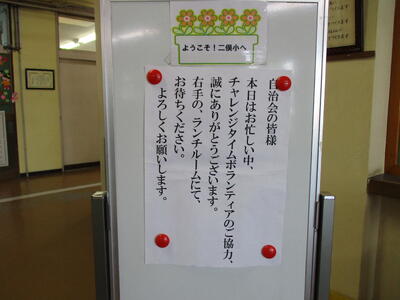 ようこそ！二俣小へ
自治会の皆様
本日はお忙しい中、
チャレンジタイムボランティアのご協力、
誠にありがとうございます。
右手の、ランチルームにて、
お待ちください。
よろしくお願いします。